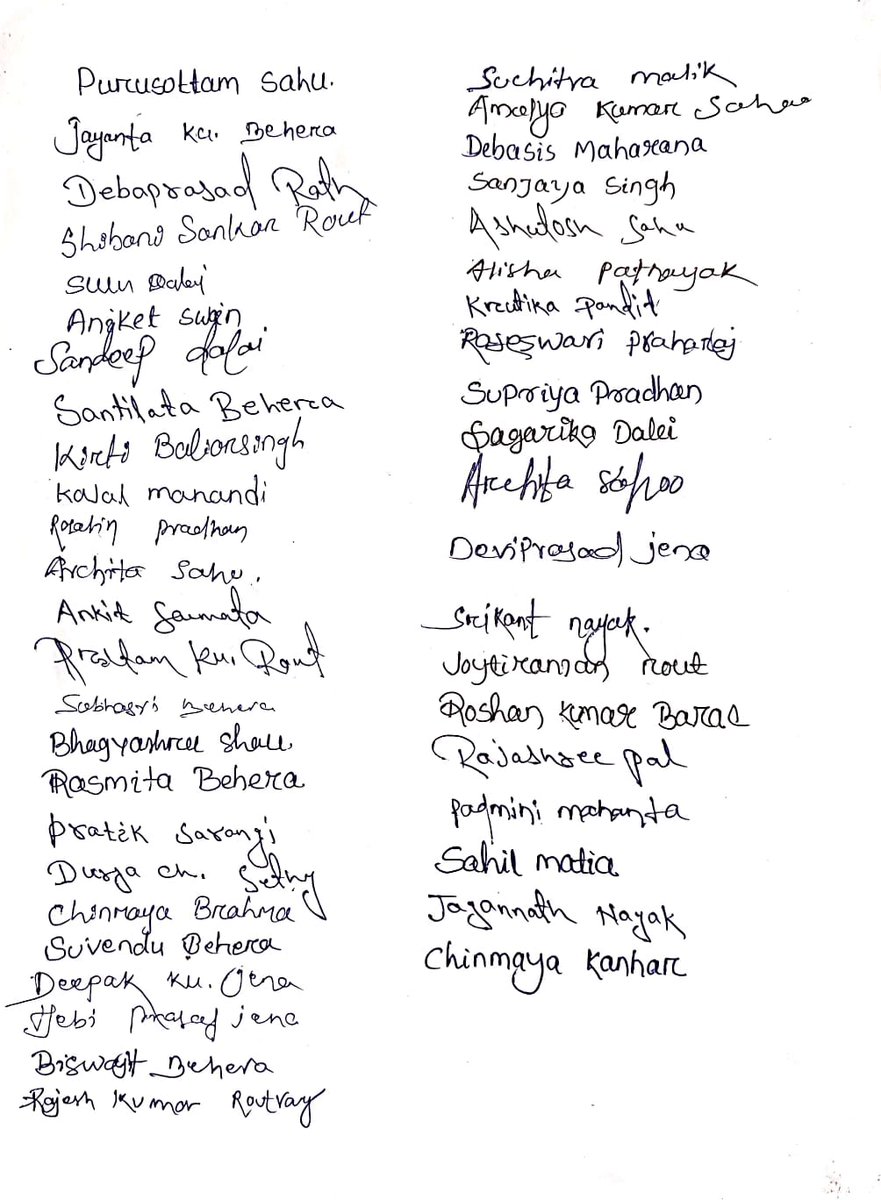 Purusottam Sahu.
Jayanta Ku. Behera
Debaprasad Rath
Shibani Sankar Rout
Dalei
Angket Swain
Sandeep dalai
Santilata Behera
Kirti Baliarsingh
Kajal manandi
Rosalin pradhan
Archita Sahu.
Ankit Samata
Pratam Ku. Rout
Subhasri Behera
Bhagyashree Shau
Rasmita Behera
Pratik Sarangi
Durga ch. Sethy
Chinmaya Brahma
Suvendu Behera
Deepak Ku. Jena
Prasad jena
Biswajit Behera
Rajesh Kumar Routray
Suchitra malik
Amulya Kumar Sahoo
Debasis Maharana
Sanjaya Singh
Ashutosh Sahu
Alisha Patnayak
Krutika Pandit
Rajeswari Praharaj
Supriya Pradhan
Sagarika Dalei
Archita Sahoo
Deviprasad jena
Srikant nayak.
Joytiranjan rout
Roshan Kumar Baras
Rajashree pal
Padmini mahanta
Sahil matia
Jagannath Nayak
Chinmaya Kanhar